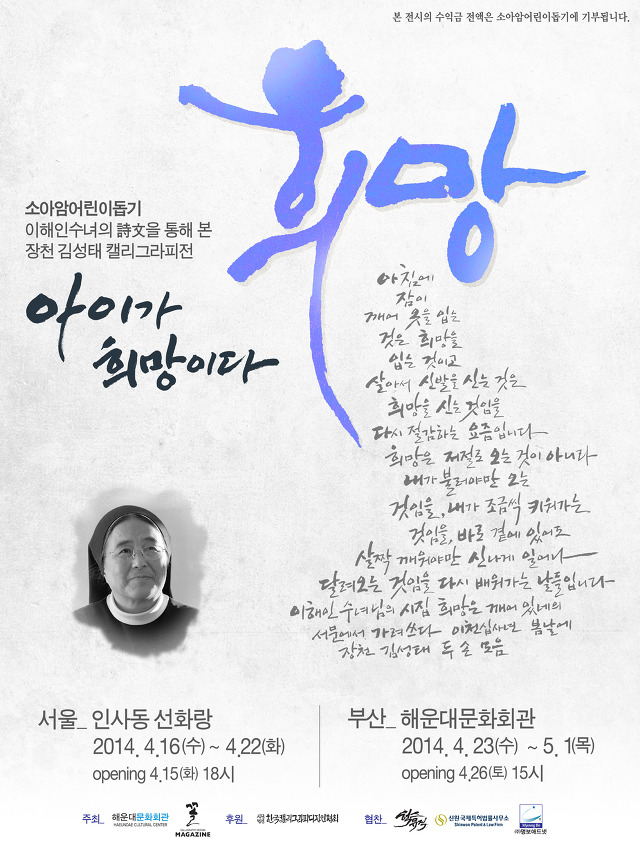 본 전시의 수익금 전액은 소아암어린이돕기에 기부됩니다.
희망
소아암어린이돕기
이해인수녀의 詩文을 통해 본
장천 김성태 캘리그라피전
아이가
희망이다
아침에
잠이
깨어 옷을 입는
것은 희망을
입는 것이고
살아서 신발을 신는 것은
희망을 신는 것임을
다시 절감하는 요즘입니다
희망은 저절로 오는 것이 아니라
내가 불러야만 오는
것임을, 내가 조금씩 키워가는
것임을, 바로 곁에 있어도
살짝 깨워야만 신나게 일어나
달려오는 것임을 다시 배워가는 날들입니다
이해인 수녀님의 시집 희망은 깨어 있네의
서문에서 가려쓰다 이천십사년 봄날에
장천 김성태 두 손 모음
서울_ 인사동 선화랑
2014. 4.16(수) ~ 4.22(화)
opening 4.15(화) 18시
부산_ 해운대문화회관
2014. 4. 23(수) ~ 5. 1(목)
opening 4.26(토) 15시
주최_ 해운대문화회관
HAEUNDAE CULTURAL CENTER
MAGAZINE
후원_
협찬_
신원국제특허법률사무소
Shinwon Patent & Law Firm
㈜명보애드넷